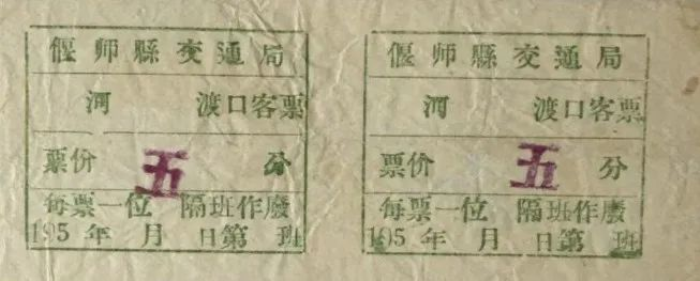 偃师縣交通局
河 渡口客票
票价 五 分
每票一位 隔班作廢
195 年 月 日第 班
偃师縣交通局
河 渡口客票
票价 五 分
每票一位 隔班作廢
195 年 月 日第 班